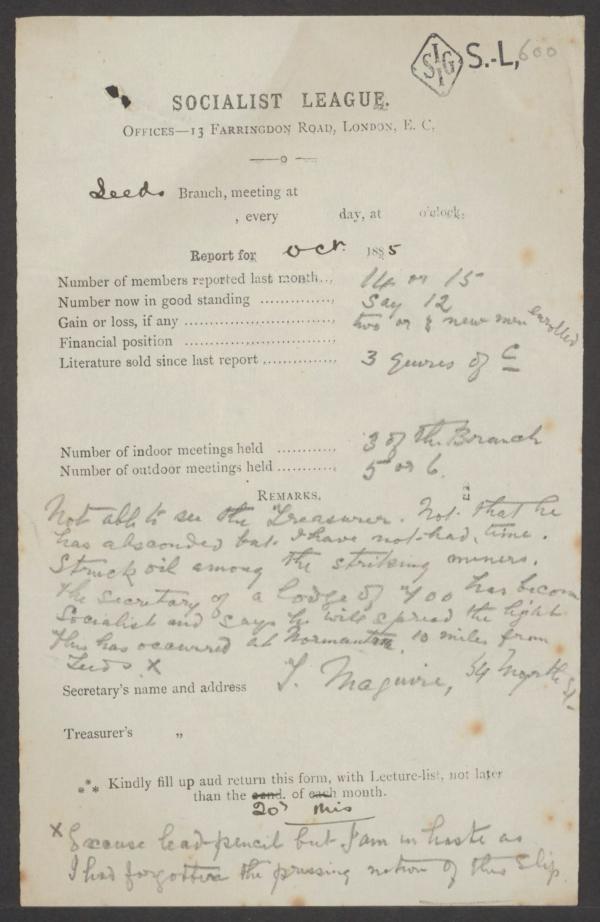 S.-L, 600
SOCIALIST LEAGUE.
OFFICES—13 FARRINGDON ROAD, LONDON, E. C.
Leeds Branch, meeting at
, every day, at o'clock.
Report for Oct. 1885
Number of members reported last month... 14 or 15
Number now in good standing .............. Say 12
Gain or loss, if any ................................. two or 3 new men enrolled
Financial position .................................
Literature sold since last report ............... 3 quires of C
Number of indoor meetings held ............ 3 of the Branch
Number of outdoor meetings held ........... 5 or 6.
REMARKS.
Not able to see the Treasurer. Not that he
has absconded but I have not had time.
Struck oil among the striking miners.
The Secretary of a lodge of 400 has become
Socialist and says he will spread the light
this has occurred at Normanton, 10 miles from
Leeds. X
Secretary's name and address T. Maguire, 54
Treasurer's „
*** Kindly fill up aud return this form, with Lecture-list, not later
than the 2nd. of each month.
20th this
X Excuse lead-pencil but I am in haste as
I had forgotten the pressing notion of this slip.